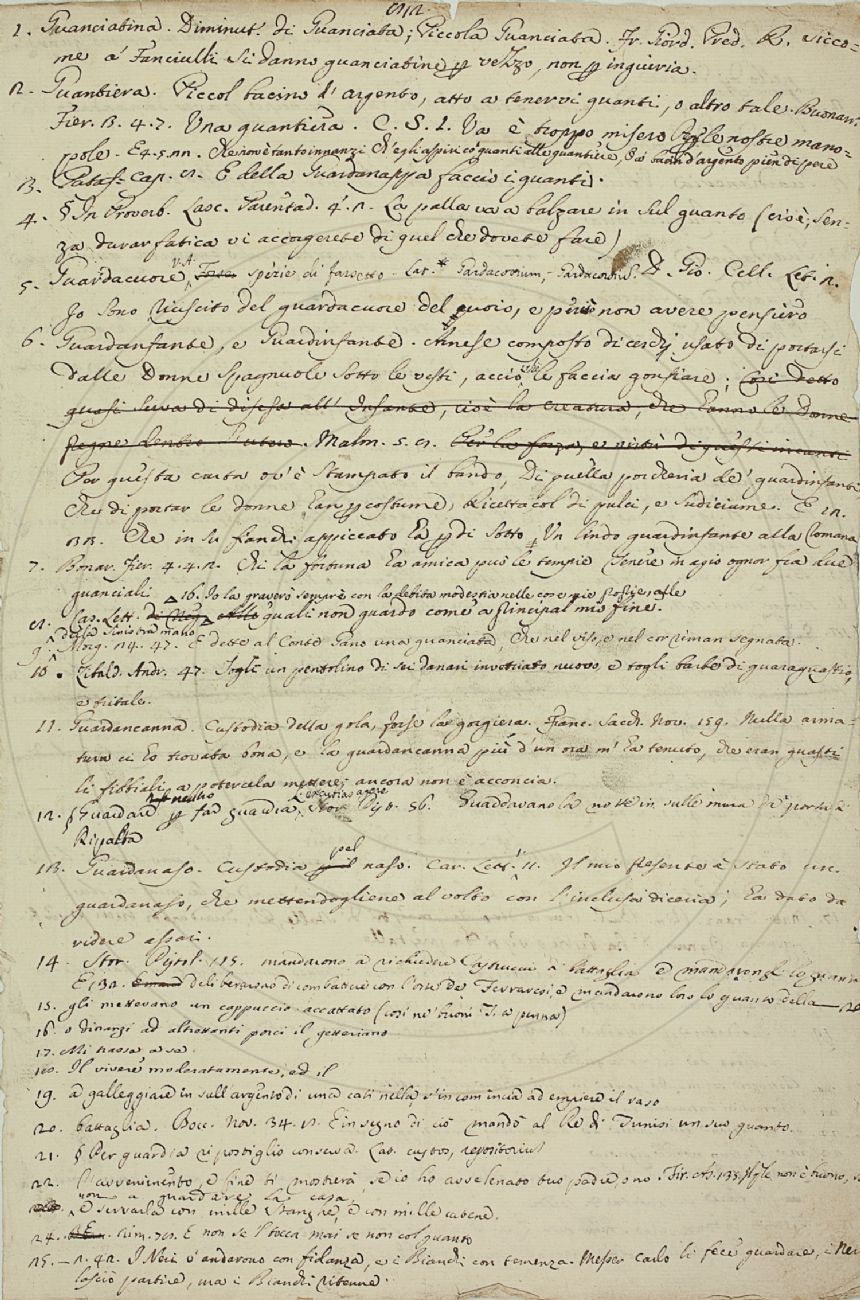 1. Guanciatina. Diminut. di Guanciata; Piccola Guanciata. Fr. Giord. Pred. R. Sicco=
me a' Fanciulli si danno guanciatine p vezzo, non p ingiuria.
2. Guantiera. Piccol bacino d'argento, atto a tenervi guanti, o altro tale. Buonarr.
Fier. 3. 4. 7. Una guantiera. C. S. 1. Va è troppo misero p le nostre mano=
pole. E 4. 5. Che non è tanto innanzi Ch'egli aspiri co' guanti alle guantiere, d'argento pien di pere
3. Pataff. cap. E della Guardanappa faccio i guanti.
4. § In Proverb. Lasc. Parentad. 4. 2. La palla va a balzare in sul guanto (cioè, sen=
za durar fatica vi accorgerete di quel che dovete fare)
5. Guardacuore. V. A. spezie di farsetto. Lat. * Gardacorium, Gardacorsus. D. Gio. Cell. Let. 2.
Io sono riuscito del guardacuore del cuoio, e perciò non avere pensiero
6. Guardanfante, e Guardinfante. Arnese composto di cerchj usato di portarsi
dalle Donne Spagnuole sotto le vesti, acciò le faccia gonfiare; Così detto
quasi serva di difesa all' Infante, cioè la creatura, che hanno le donne
pregne dentro l'utero. Malm. 5. Per la forza, e virtù di questi incanti
Per questa carta ov'è stampato il bando, Di quella porcheria de' guardinfanti
Che di portar le donne han p costume, Ricettacol di pulci, e sudiciume. E 12.
Che in su' fianchi appiccato ha p di sotto Un lindo guardinfante alla Romana
7. Bonar. Fier. 4. 4. 2. Chi la fortuna ha amica può le tempie Tenere in agio ognor fra due
guanciali
16. Io la graverò sempre con la debita modestia nelle cose mie
Cas. Lett. quali non guardo come a principal mio fine.
della sinistra mano
9. Morg. 24. 47. E dette al Conte Gano una guanciata, Che nel viso, e nel cor riman segnata.
10. Libald. Andr. 47. Togli un pentolino di sei danari invetriato nuovo, e togli barbe di guaraguastio,
e tritale.
11. Guardacanna. Custodia della gola, forse la gorgiera. Franc. Sacch. Nov. 159. Nulla arma=
tura ci ho trovata bona, e la guardacanna più d'un ora m'ha tenuto, che eran guasti
li fibbiali, a potercela mettere; ancora non è acconcia.
12. § Guardare p far guardia, Stor. Pist. 56. Guardavano la notte in sulle mura di porta
Ripalta
13. Guardanaso. Custodia pel naso. Car. Lett. 11. Il mio presente è stato un
guardanaso, che mettendogliene al volto con l'inclusa diceria; ha dato da
ridere assai.
14. Stor. Pistol. 115. mandarono a richiedere Castruccio a battaglia e mandarongli lo guanto
E 132. deliberarono di combattere con l'oste de' Ferraresi, e mandarono loro lo guanto della
15. gli mettevano un cappuccio accattato (così ne' buoni T. a penna)
16. o dinanzi ad altrettanti porci il getteriano
17. Mi trasse a sè.
Il vivere moderatamente, ed il
19. a galleggiare in sull'argento di una catinella, s'incomincia ad empiere il vaso
20. battaglia. Bocc. Nov. 34. E in segno di ciò mandò al Re di Tunisi un suo guanto.
21. § Per guardia ripostiglio conserva. Lat. custos, repositorius
22. L'avvenimento, e fine ti mostrerà se io ho avvelenato tuo padre, o no. Fir. As.
non a guardare la casa,
e serrarla con mille stanghe, e con mille catene.
24. Rim. E non se l'tocca mai se non col guanto
25. I Neri v'andarono con fidanza, e i Bianchi con temenza. Messer Carlo li fece guardare, i Neri
lasciò partire, ma i Bianchi ritenne.